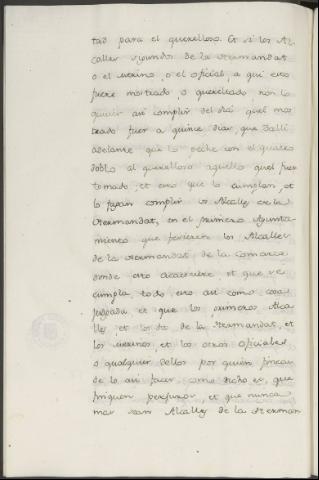 tad para el querelloso. Et si los Al-
calles
de la Hermandat
o el merino, o el oficial, a qui esto
fuere mostrado, o querellado, non lo
asi complir del dia quel mos-
trado fuer a quince dias, que dalli
adelante que lo peche con el quatro
doblo al querelloso aquello quel fuer
tomado, et esto que lo cumplan, et
lo fagan complir los Alcalles de la
Hermandat, en el primero Ayunta-
miento que ficieren los Alcalles
de la Hermandat de la Comarca
donde esto acaesciere et que se
cumpla todo esto asi como cosa
juzgada et que los primeros Alca-
lles et los de la Hermandat, et
los merinos, et los otros oficiales
o qualquier dellos por quien fincar
de lo asi facer, como dicho es, que
finquen perjuros, et que nunca
mas sean Alcalles de la Herman